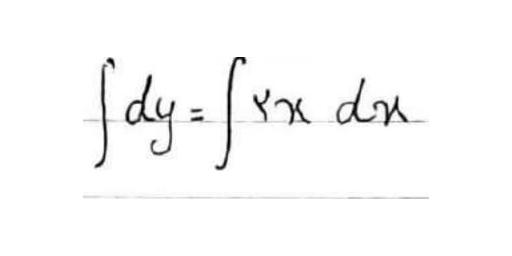 ∫dy = ∫۲x dx